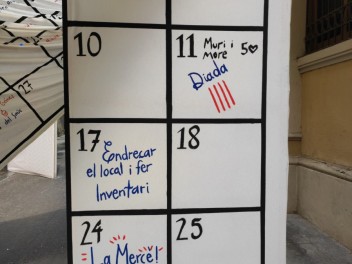 10
11 Muri i
More 50♥
Diada
17 Endreçar
el local i fer
Inventari
18
24
La Mercè!
25
27